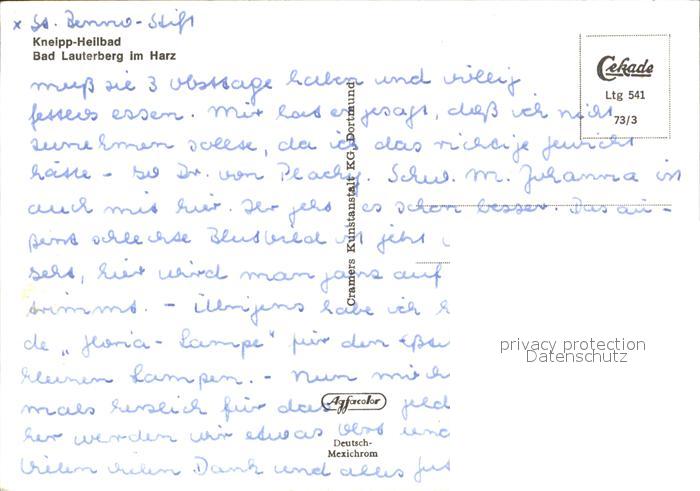 x St. Benno-Stift
Kneipp-Heilbad
Bad Lauterberg im Harz
muß sie 3 Obsttage haben und völlig
fettlos essen. Mir hat er gesagt, daß ich nicht
zunehmen sollte, da ich das richtige Gewicht
hätte - so Dr. von Plachy. Schw. M. Johanna ist
auch mit hier. Ihr geht es schon besser. Das äu-
ßerst schlechte Blutbild ist jetzt
seht, hier wird man ganz auf
trimmt. - Übrigens habe ich
de „Gloria-Lampe" für den
kleinen Lampen. - Nun
mals herzlich für das Geld
her werden wir etwas Obst und
Vielen vielen Dank und alles Gut
Cekade
Ltg 541
73/3
Cramers Kunstanstalt KG. Dortmund
Agfacolor
Deutsch-
Mexichrom
privacy protection
Datenschutz